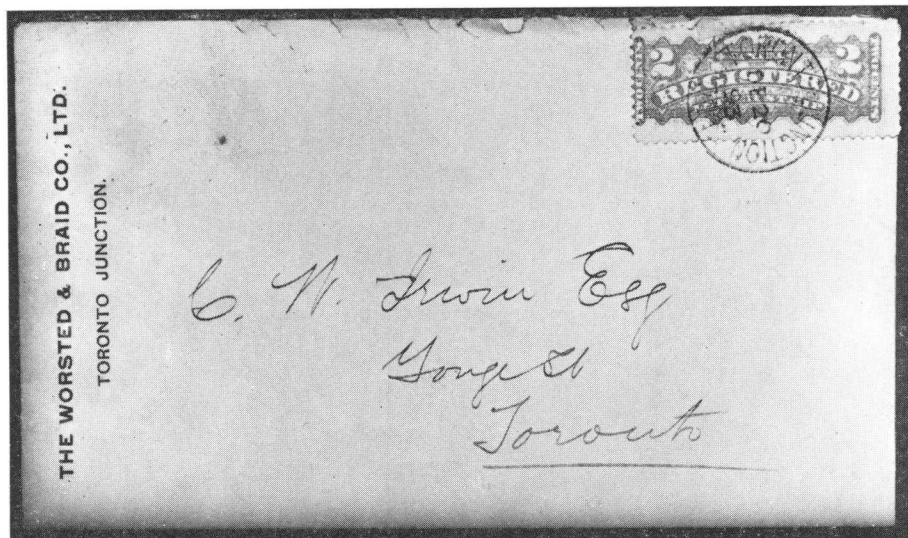 THE WORSTED & BRAID CO., LTD.
TORONTO JUNCTION.
2 REGISTERED 2
TORONTO JUNCTION
C. W. Irwin Esq
Yonge St
Toronto